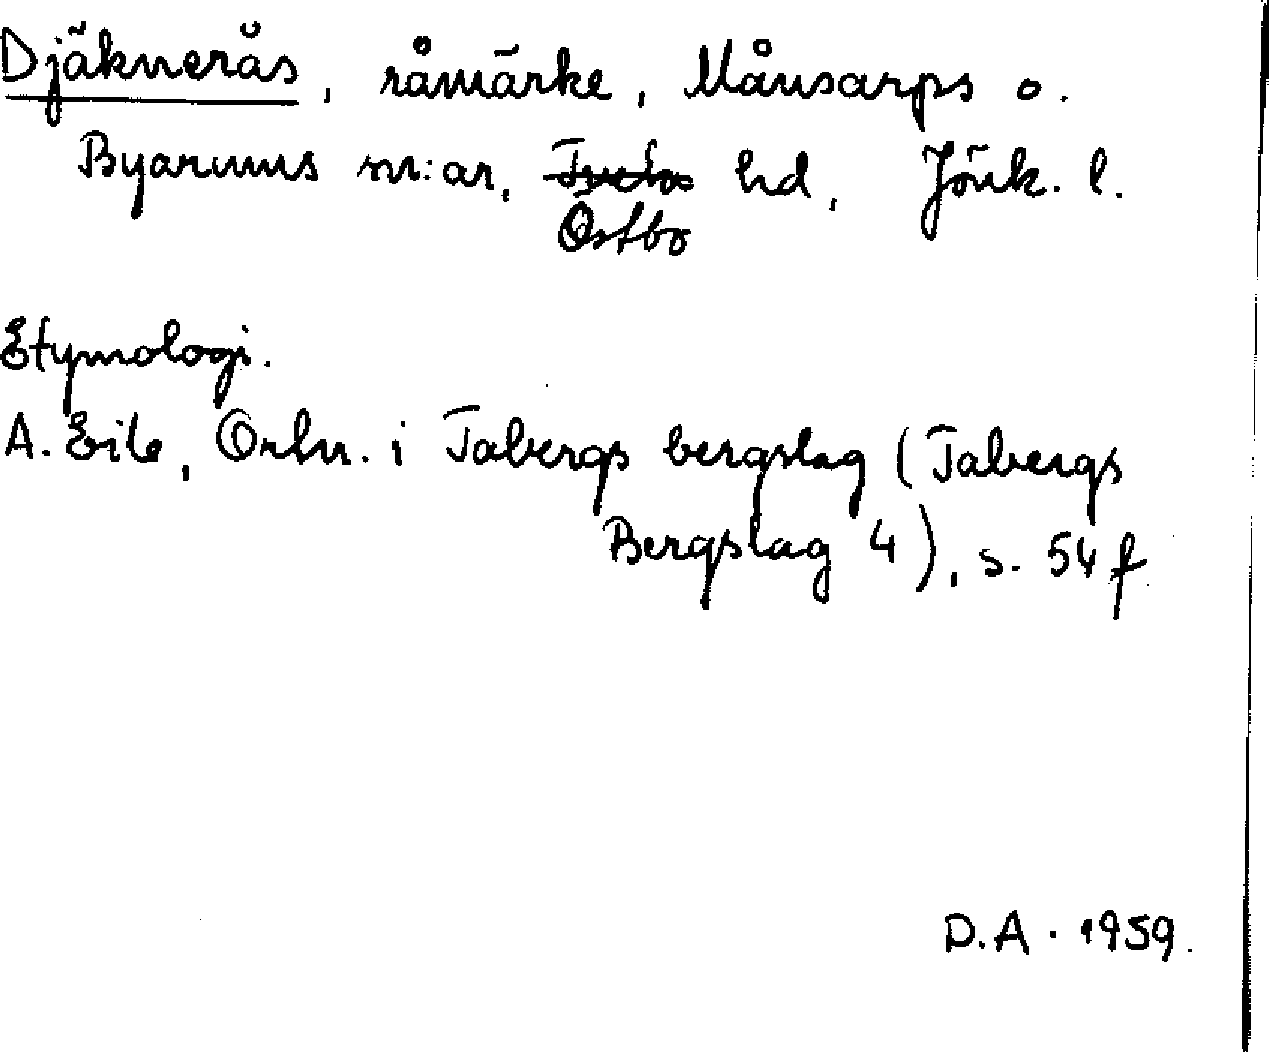 Djäknerås, råmärke, Månsarps o.
Byarums sn:ar, hd, Jönk. l.
Östbo
Etymologi.
A. Eile, Ortn. i Tabergs bergslag (Tabergs
Bergslag 4), s. 54 f
D.A. 1959.